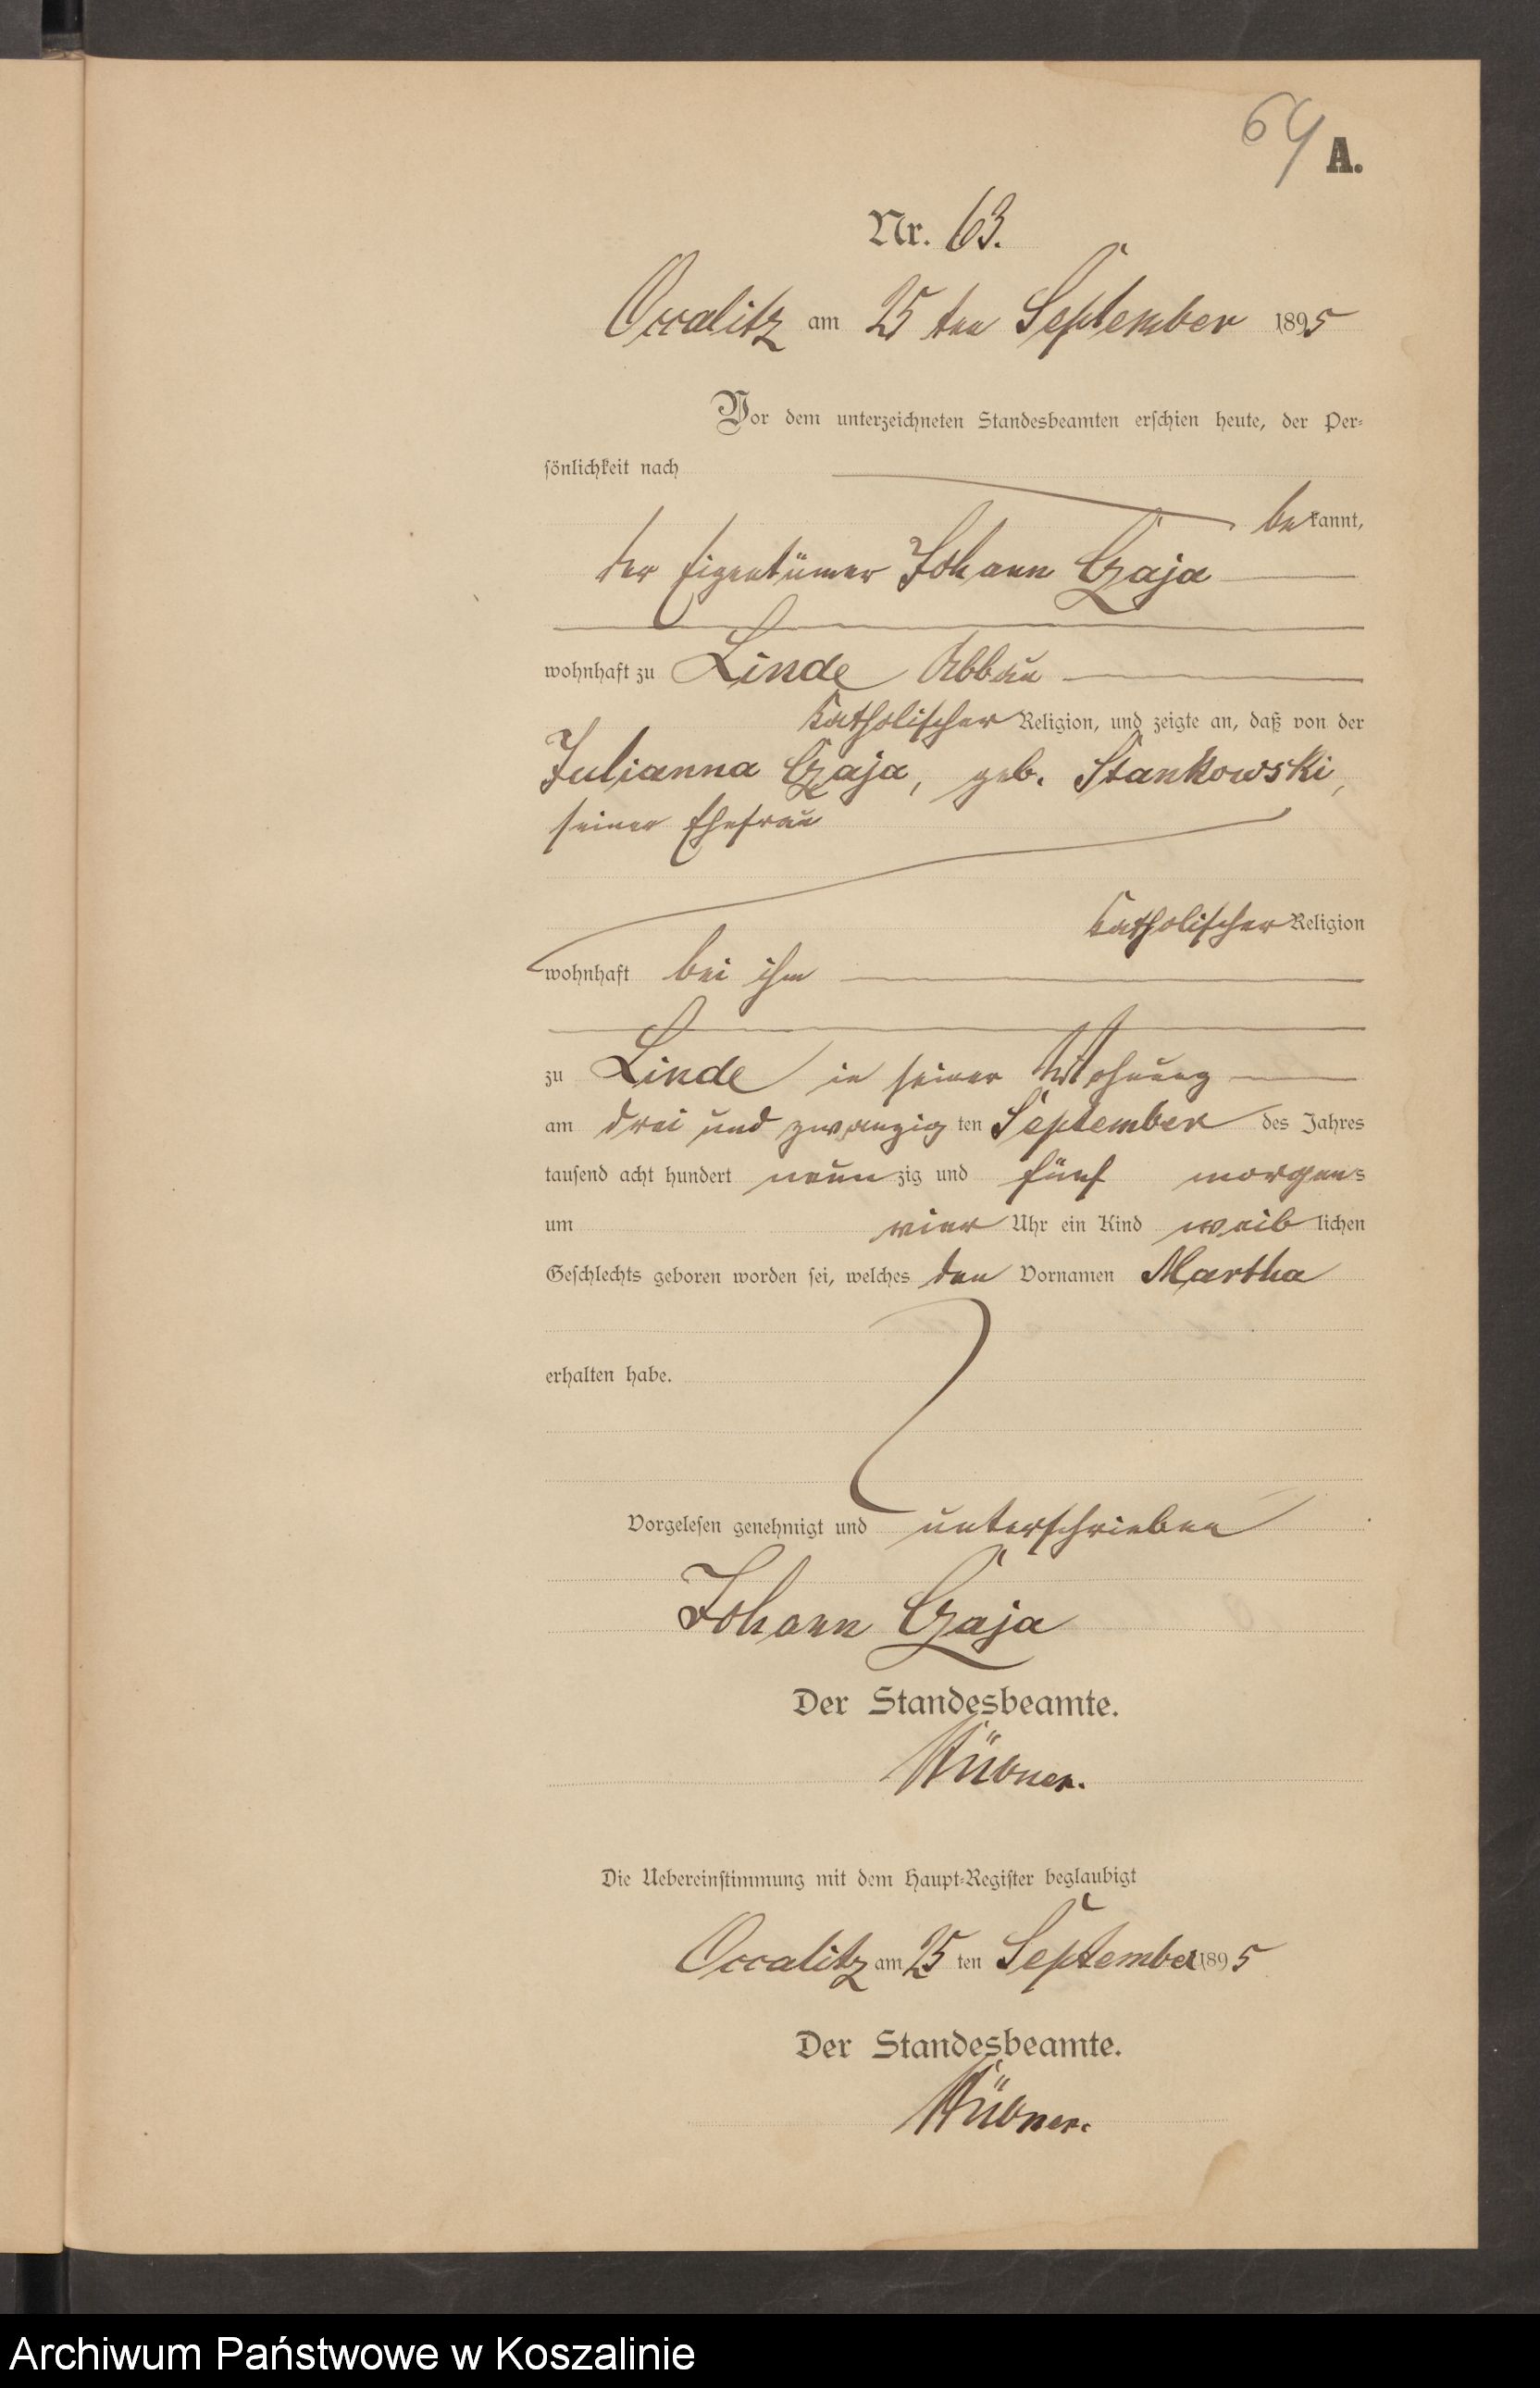 64 A.
Nr. 63.
Occalitz am 25 ten September 1895
Vor dem unterzeichneten Standesbeamten erschien heute, der Per-
sönlichkeit nach
bekannt,
der Eigentümer Johann Czaja
wohnhaft zu Linde Abbau
katholischer Religion, und zeigte an, daß von der
Julianna Czaja, geb. Stankowski,
seiner Ehefrau
katholischer Religion
wohnhaft bei ihm
zu Linde in seiner Wohnung
am drei und zwanzig ten September des Jahres
tausend acht hundert neunzig und fünf morgens
um vier Uhr ein Kind weiblichen
Geschlechts geboren worden sei, welches den Vornamen Martha
erhalten habe.
Vorgelesen genehmigt und unterschrieben
Johann Czaja
Der Standesbeamte.
Hübner.
Die Uebereinstimmung mit dem Haupt-Register beglaubigt
Occalitz am 25 ten September 1895
Der Standesbeamte.
Hübner.
Archiwum Państwowe w Koszalinie